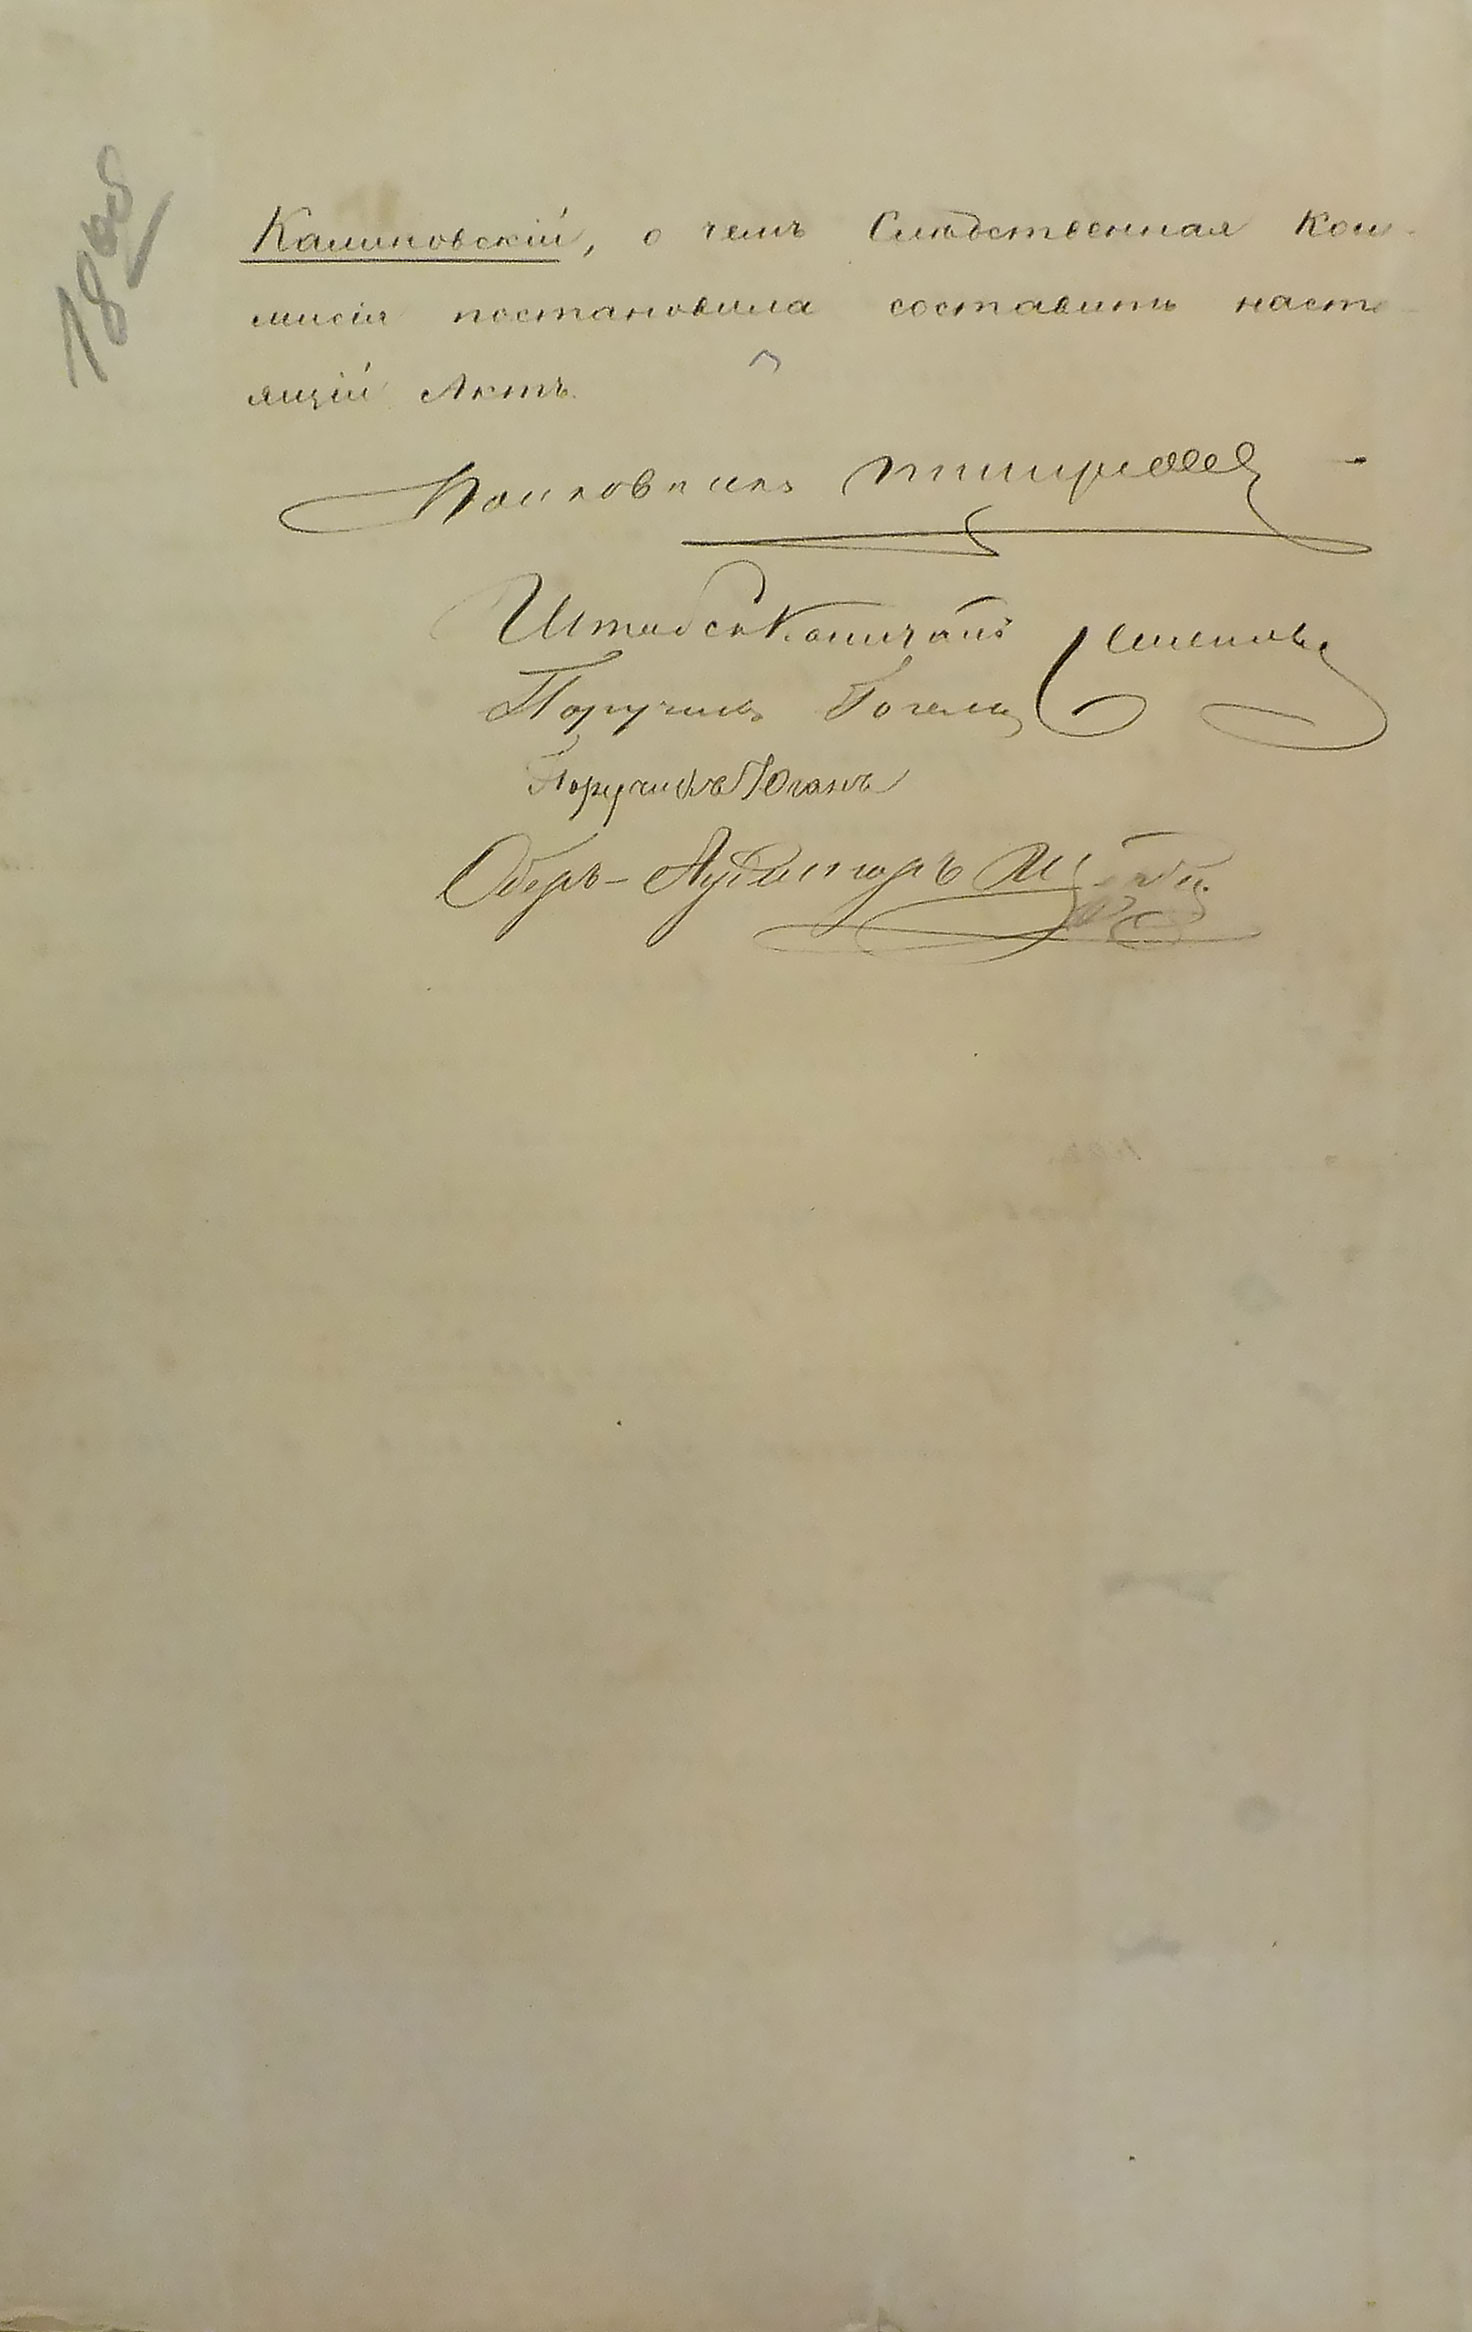 18 об
Калиновскiй, о чемъ Слѣдственная Ком-
мисiя постановила составить насто-
ящiй Актъ.
Полковникъ
Штабсъ Капитанъ Семеновъ
Поручикъ Гогель
Поручикъ Юганъ
Оберъ-Аудиторъ